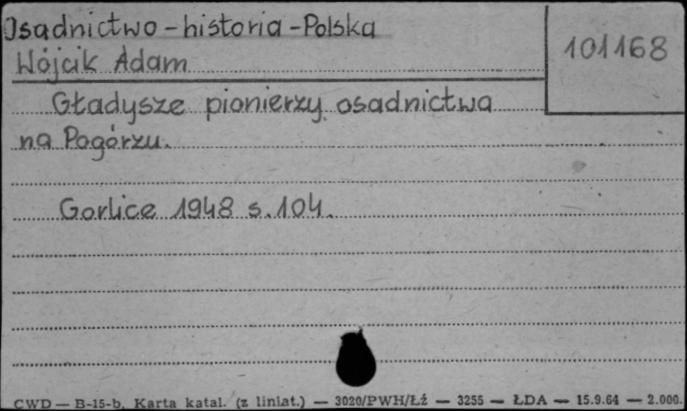 Osadnictwo - historia - Polska
101168
Wójcik Adam
Gładysze pionierzy osadnictwa
na Pogórzu.
Gorlice 1948 s. 104.
CWD — B-15-b. Karta katal. (z liniat.) — 3020/PWH/Łź — 3255 — ŁDA — 15.9.64 — 2.000.